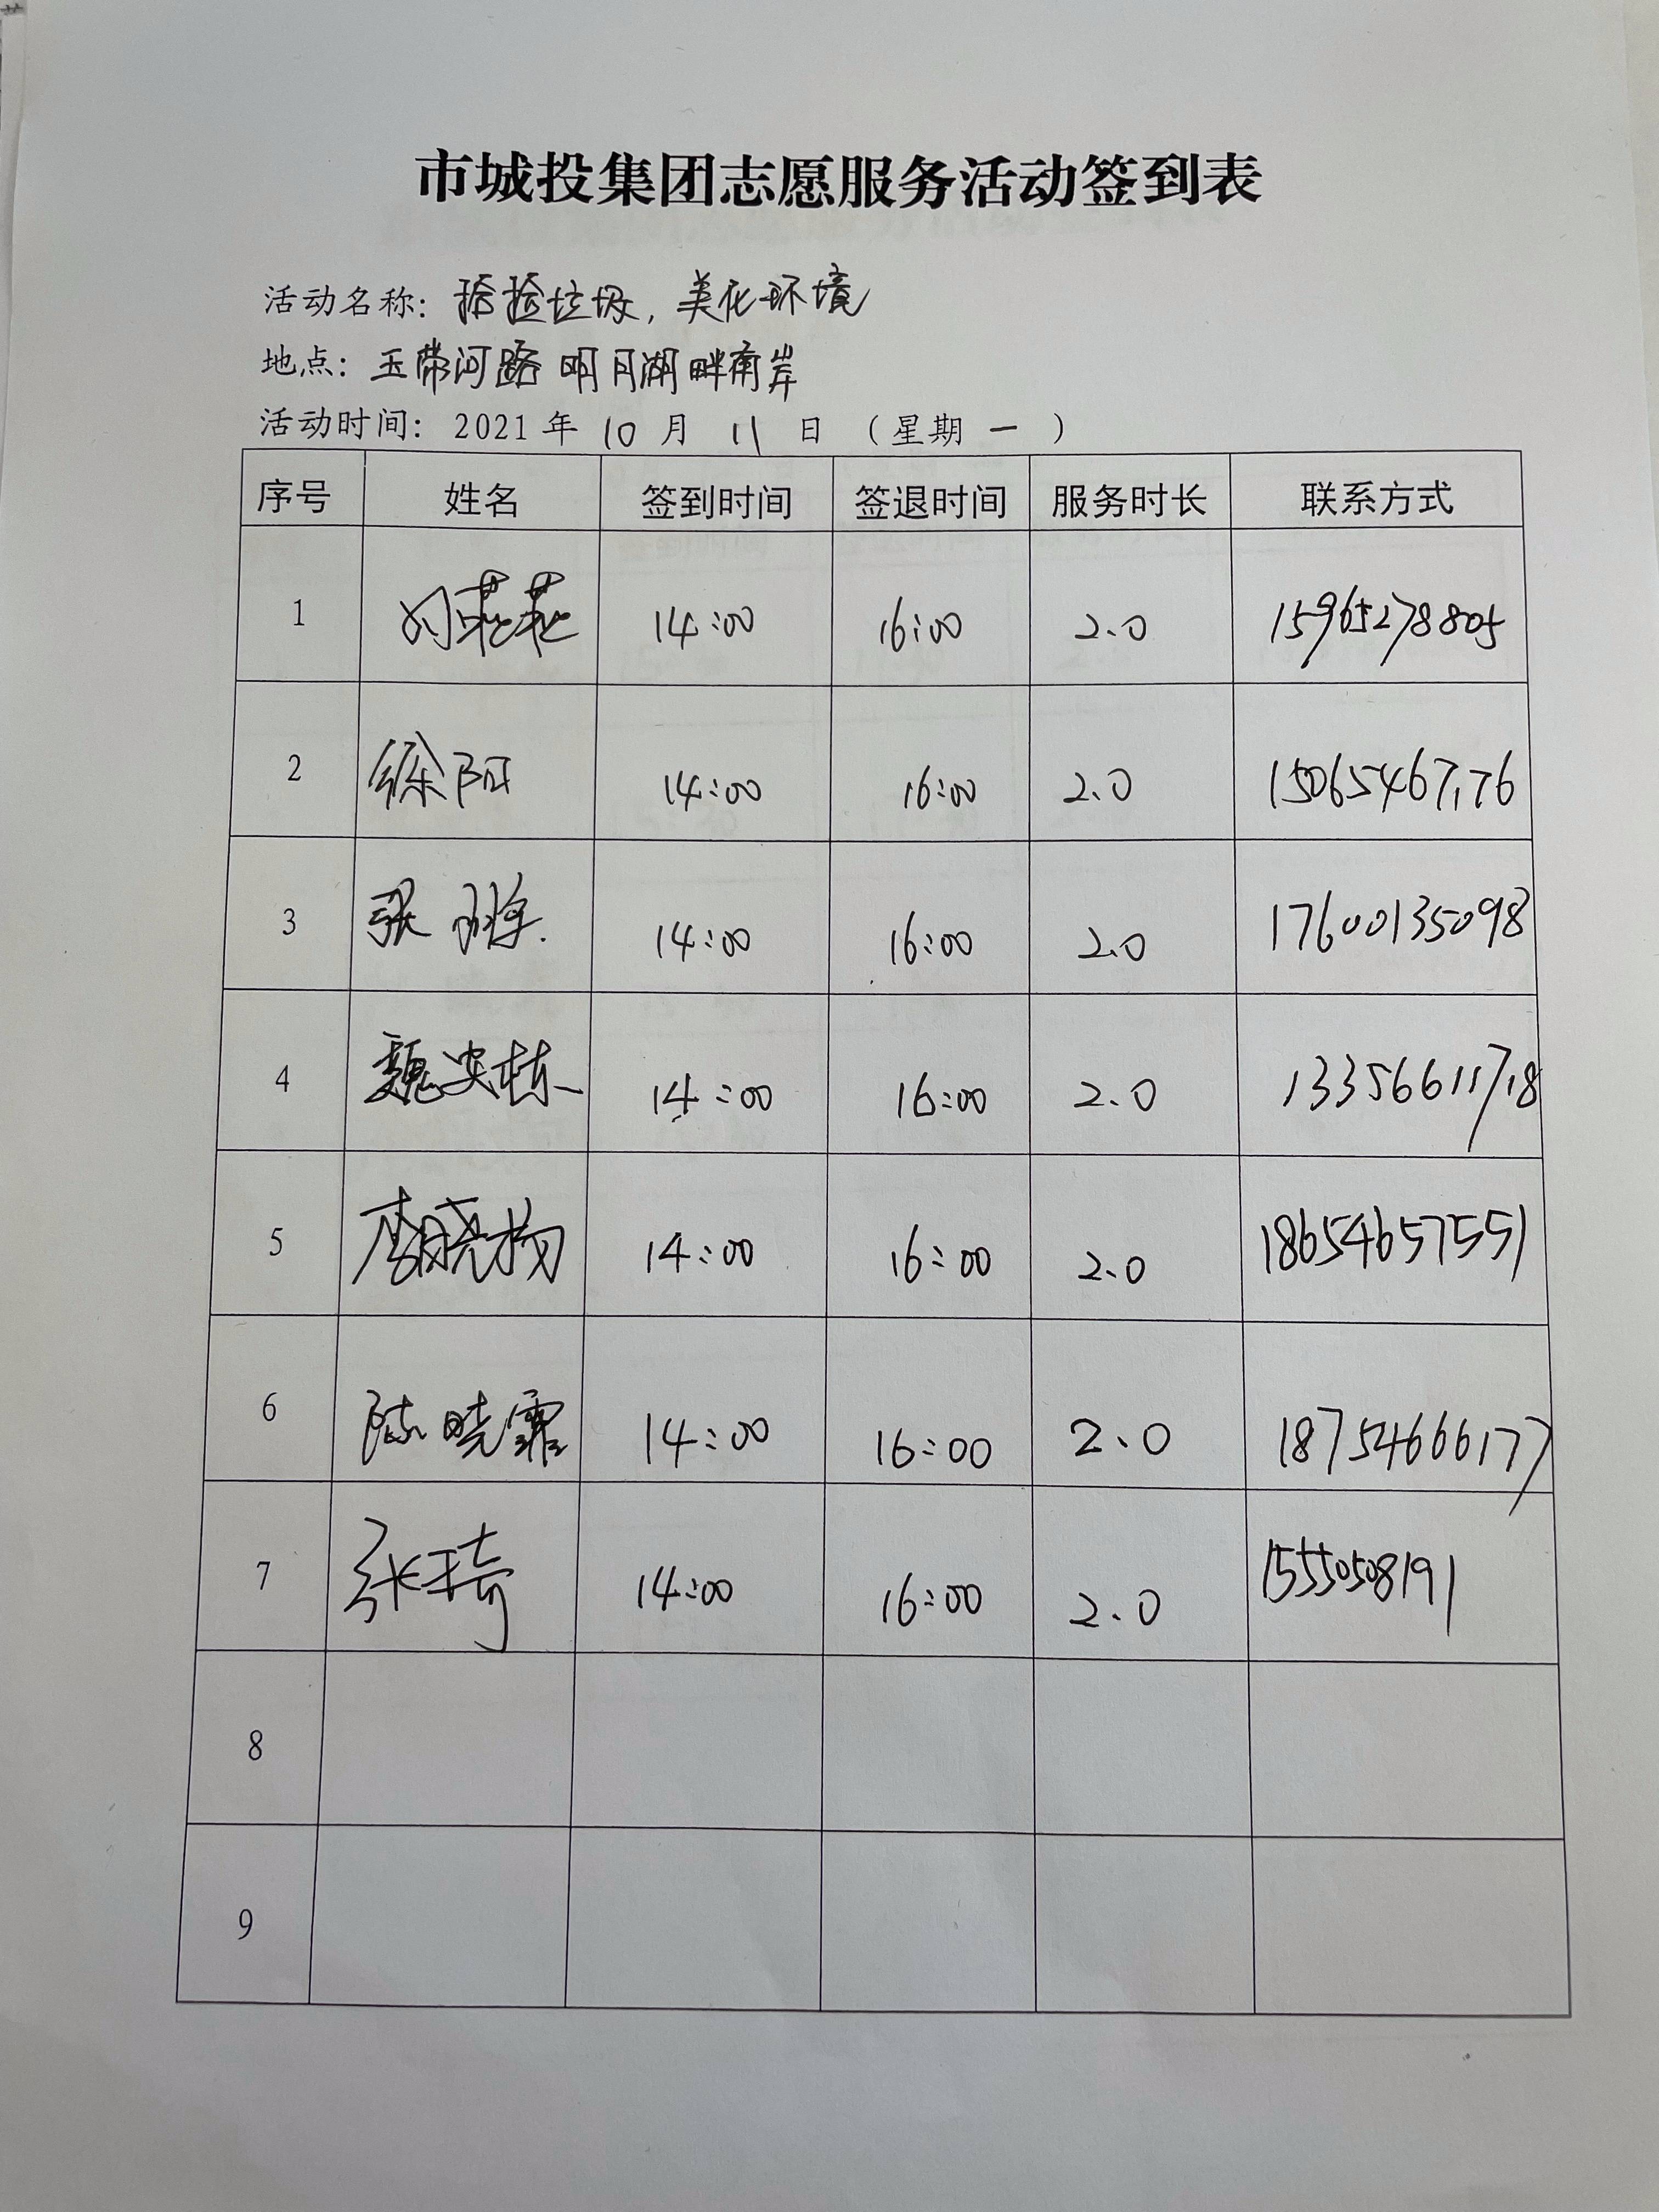 市城投集团志愿服务活动签到表
活动名称：拾捡垃圾，美化环境
地点：玉带河路 明月湖畔南岸
活动时间：2021年 10 月 11 日 （星期 一 ）
序号 姓名 签到时间 签退时间 服务时长 联系方式
1 14:00 16:00 2.0 15965278805
2 徐阳 14:00 16:00 2.0 15065467176
3 张 14:00 16:00 2.0 17600135098
4 魏 栋 14:00 16:00 2.0 13356611718
5 李晓杨 14:00 16:00 2.0 18654657551
6 陈晓霏 14:00 16:00 2.0 18754666177
7 张琦 14:00 16:00 2.0 15550508191
8
9